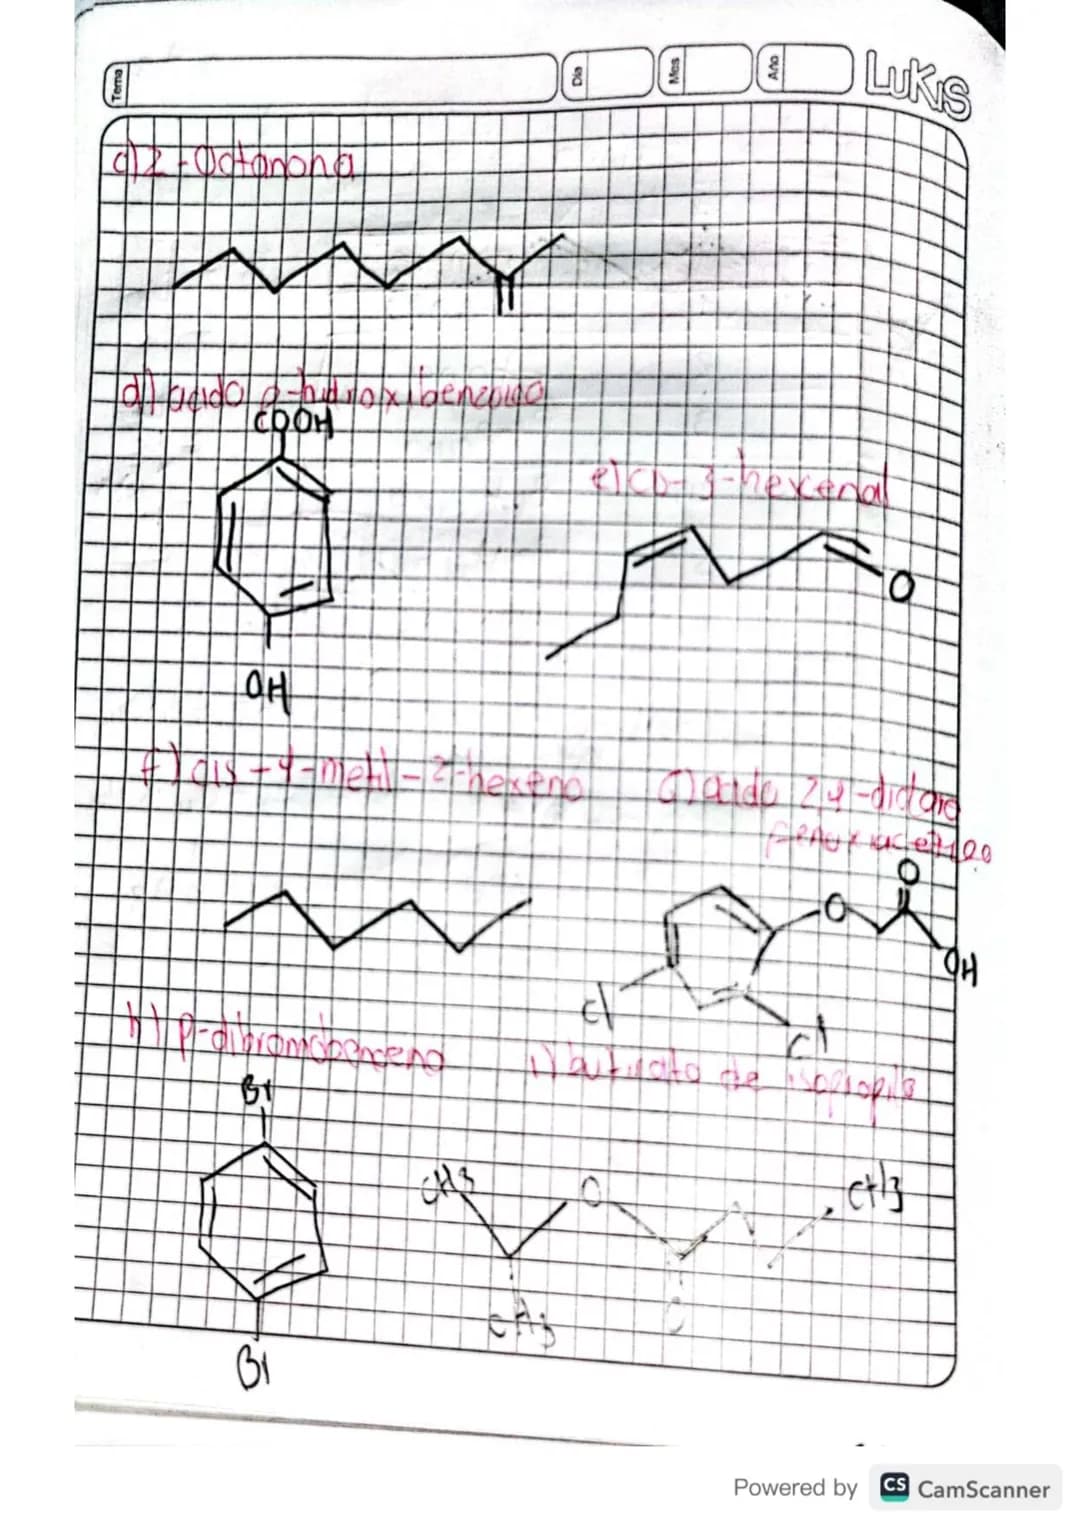 Tema
Dia
Mes
Año
LUKIS
c) 2-Octanona
d) acido p-hidroxibenzoico
COOH
OH
e) cis-3-hexenal
O
f) cis-4-metil-2-hexeno
G) acido 2,4-dicloro
fenoxiacetico
O
O
OH
Cl
Cl
h) p-dibromobenceno
Br
Br
i) butirato de isopropilo
CH3
O
CH3
CH3
O
Powered by CS CamScanner